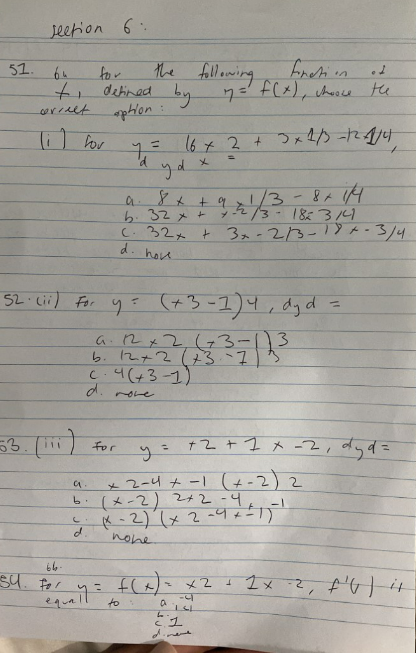 section 6:
51. 6b for the following function of
f, defined by y = f(x), choose the
correct option:
(i) for y = 16 x 2 + 3 x 1/3 - 12 1/4,
d y d x =
a. 8 x + 9 x 1/3 - 8 x 1/4
b. 32 x + x-2/3 - 18x 3/4
c. 32x + 3x - 2/3 - 18 x - 3/4
d. none
52. (ii) For y = (x3 - 1) 4, dyd =
a. 12 x 2 (x3 - 1) 3
b. 12x2 (x3 - 1) 3
c. 4(x3 - 1)
d. none
53. (iii) for y = x2 + 1 x - 2, dyd =
a. x 2-4 x -1 (x-2) 2
b. (x-2) 2x2 -4x -1
c. (x-2) (x 2 -4x -1)
d. none
6b.
54. For y = f(x) = x2 + 1x -2, f'( ) is
equall to: a. -4
b. 14
c. 1
d. none